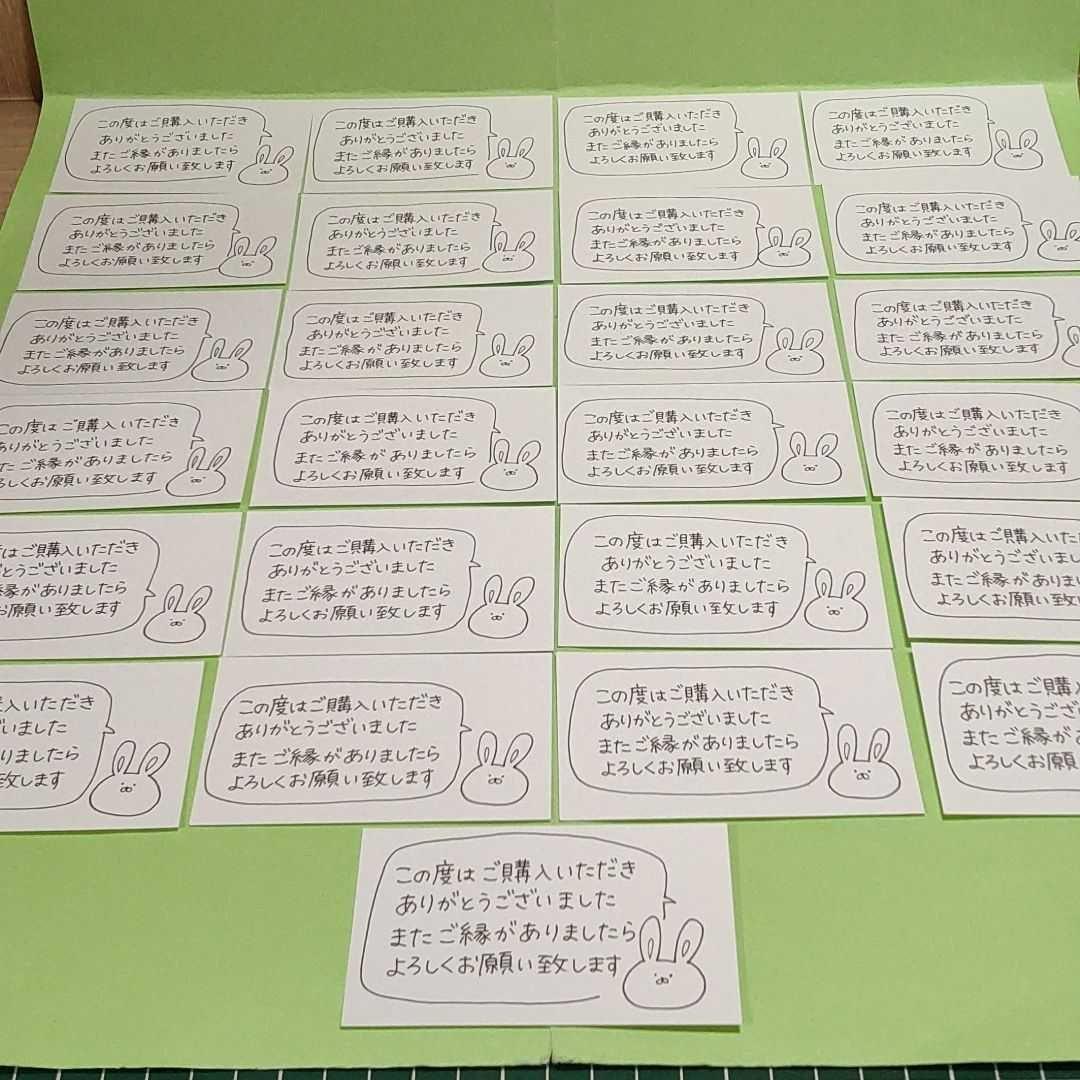 この度はご購入いただき
ありがとうございました
またご縁がありましたら
よろしくお願い致します
この度はご購入いただき
ありがとうございました
またご縁がありましたら
よろしくお願い致します
この度はご購入いただき
ありがとうございました
またご縁がありましたら
よろしくお願い致します
この度はご購入いただき
ありがとうございました
またご縁がありましたら
よろしくお願い致します
この度はご購入いただき
ありがとうございました
またご縁がありましたら
よろしくお願い致します
この度はご購入いただき
ありがとうございました
またご縁がありましたら
よろしくお願い致します
この度はご購入いただき
ありがとうございました
またご縁がありましたら
よろしくお願い致します
この度はご購入いただき
ありがとうございました
またご縁がありましたら
よろしくお願い致します
この度はご購入いただき
ありがとうございました
またご縁がありましたら
よろしくお願い致します
この度はご購入いただき
ありがとうございました
またご縁がありましたら
よろしくお願い致します
この度はご購入いただき
ありがとうございました
またご縁がありましたら
よろしくお願い致します
この度はご購入いただき
ありがとうございました
またご縁がありましたら
よろしくお願い致します
この度はご購入いただき
ありがとうございました
またご縁がありましたら
よろしくお願い致します
この度はご購入いただき
ありがとうございました
またご縁がありましたら
よろしくお願い致します
この度はご購入いただき
ありがとうございました
またご縁がありましたら
よろしくお願い致します
この度はご購入いただき
ありがとうございました
またご縁がありましたら
よろしくお願い致します
はご購入いただき
とうございました
縁がありましたら
お願い致します
この度はご購入いただき
ありがとうございました
またご縁がありましたら
よろしくお願い致します
この度はご購入いただき
ありがとうございました
またご縁がありましたら
よろしくお願い致します
この度はご購入いた
ありがとうございま
またご縁がありま
よろしくお願い致
入いただき
いました
ありましたら
致します
この度はご購入いただき
ありがとうございました
またご縁がありましたら
よろしくお願い致します
この度はご購入いただき
ありがとうございました
またご縁がありましたら
よろしくお願い致します
この度はご購入
ありがとうござ
またご縁があ
よろしくお願い
この度はご購入いただき
ありがとうございました
またご縁がありましたら
よろしくお願い致します